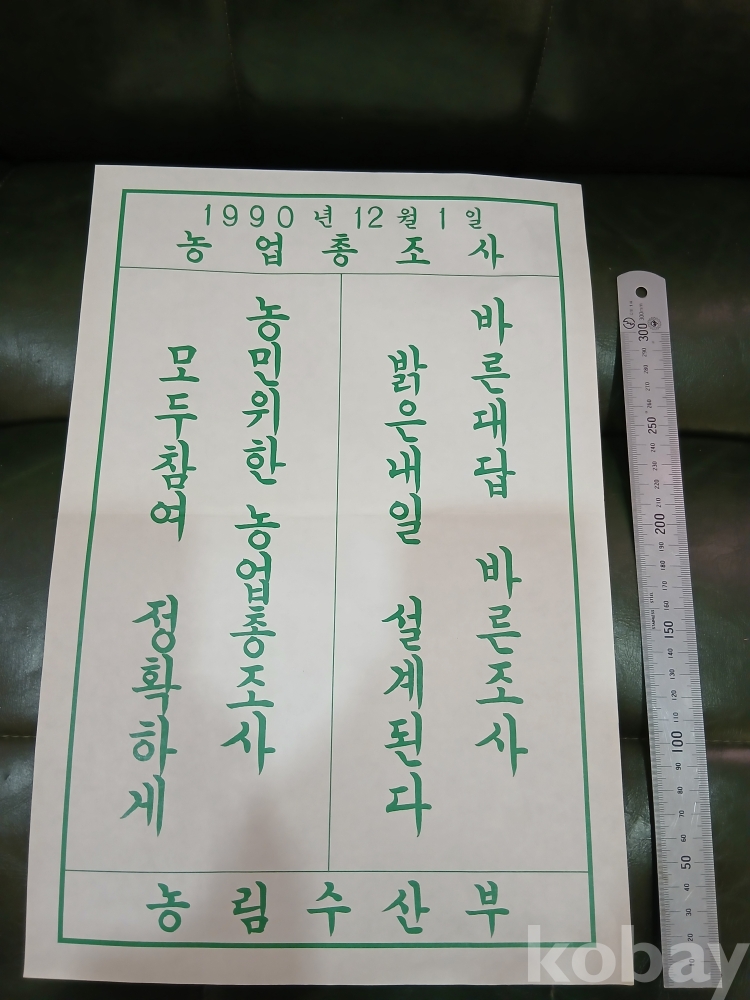 1990년 12월 1일
농업총조사
바른대답 바른조사
밝은내일 설계된다
농민위한 농업총조사
모두참여 정확하게
농림수산부
300
250
200
150
100
50
kobay